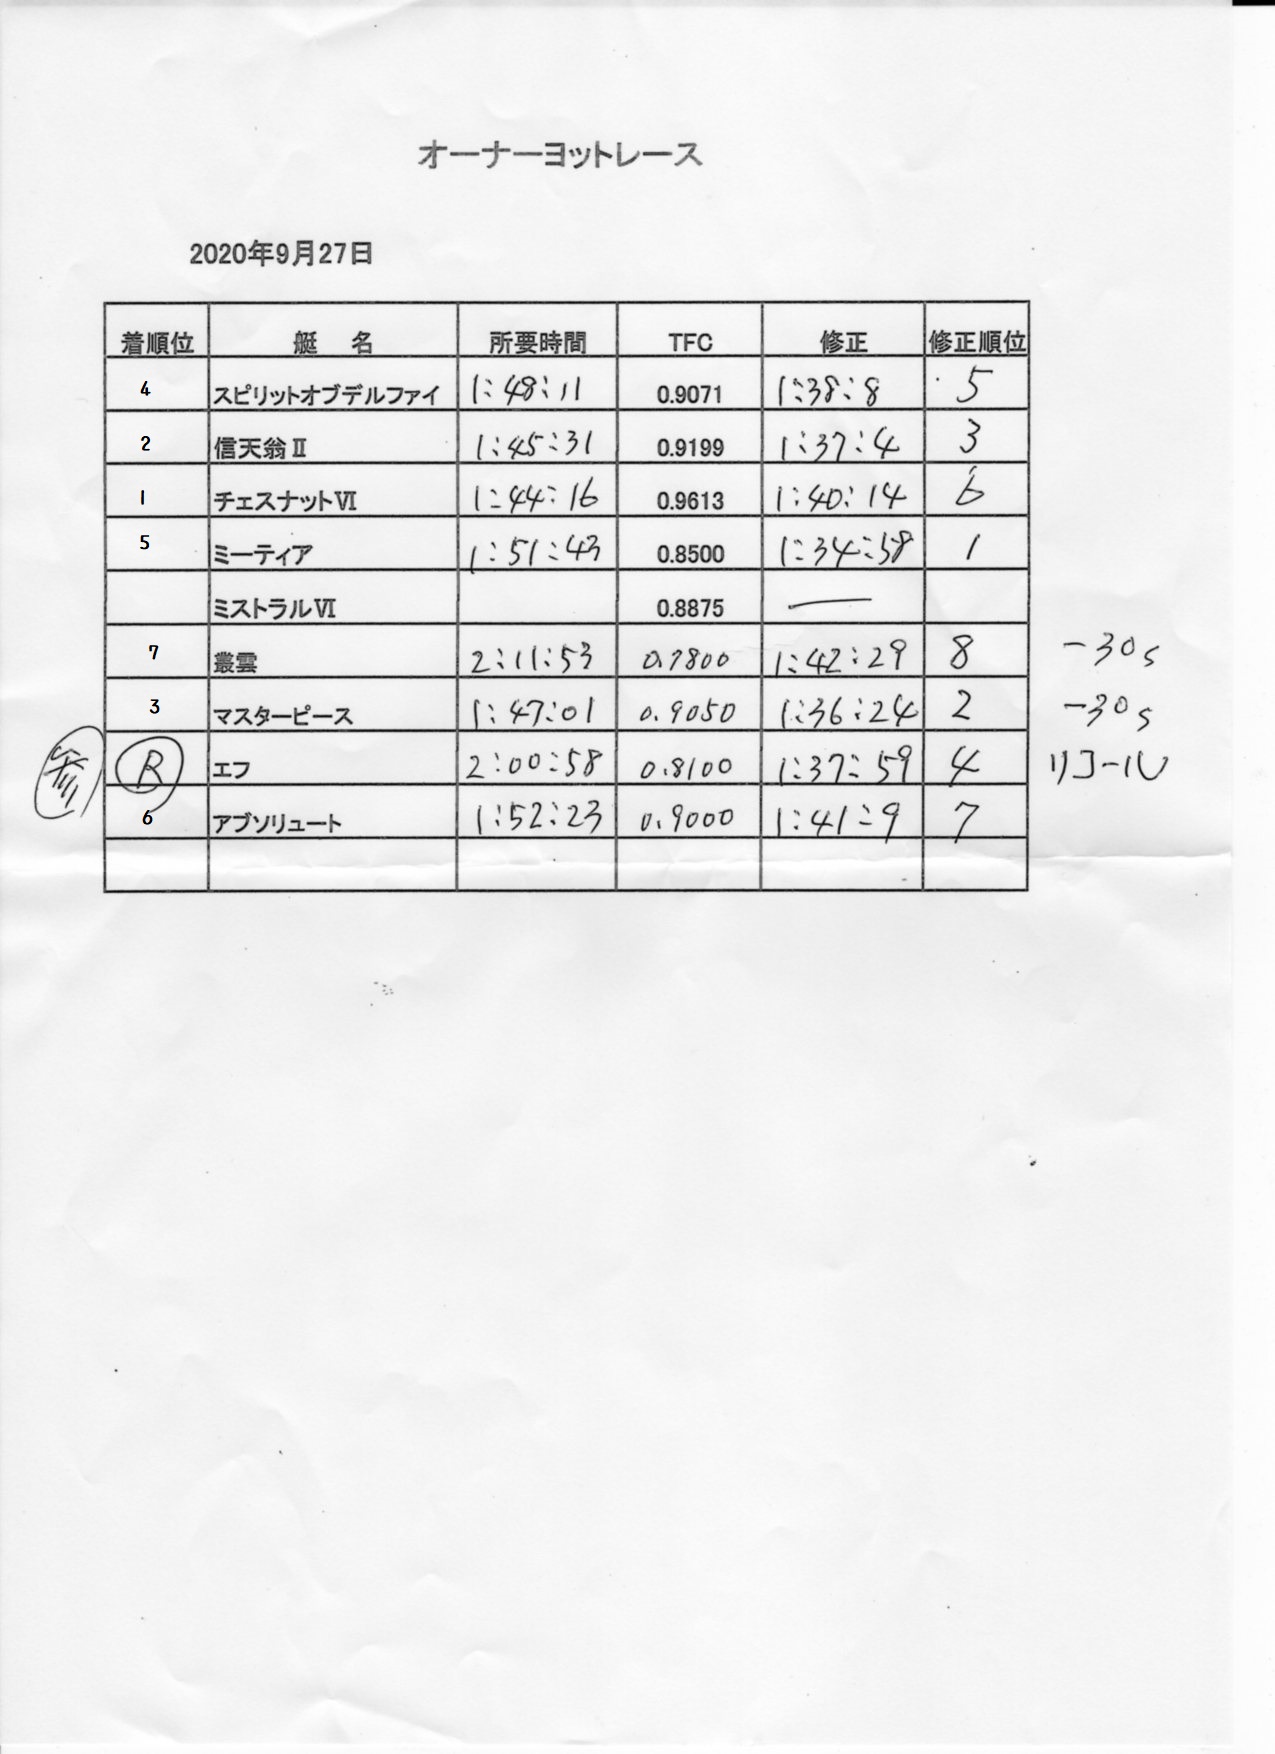 オーナーヨットレース
2020年9月27日
着順位 艇 名 所要時間 TFC 修正 修正順位
4 スピリットオブデルファイ 1:48:11 0.9071 1:38:8 5
2 信天翁Ⅱ 1:45:31 0.9199 1:37:4 3
1 チェスナットⅥ 1:44:16 0.9613 1:40:14 6
5 ミーティア 1:51:43 0.8500 1:34:58 1
ミストラルⅥ 0.8875 —
7 叢雲 2:11:53 0.7800 1:42:29 8 -30s
3 マスターピース 1:47:01 0.9050 1:36:24 2 -30s
R エフ 2:00:58 0.8100 1:37:59 4 リコール
6 アブソリュート 1:52:23 0.9000 1:41:9 7